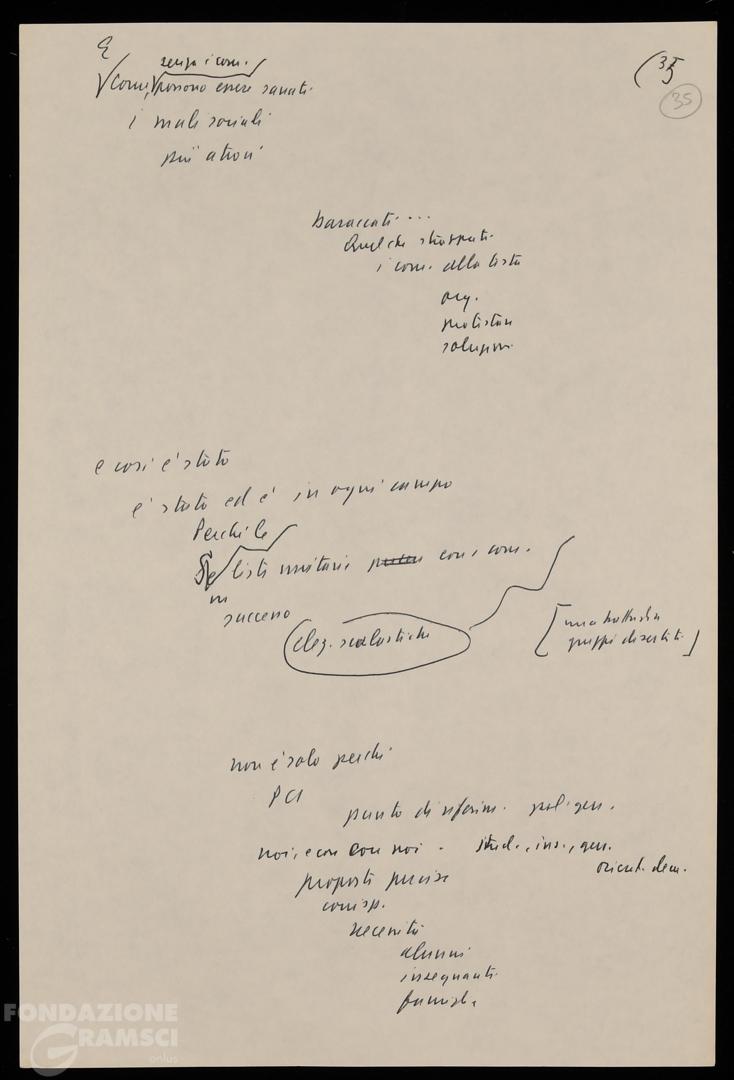 (35
35
E
senza i com.
come, possono essere sanati
i mali sociali
più atroci
baraccati ...
Quelche strappati.
i com. alla testa
org.
prospettare
soluzioni
e così è stato
è stato ed è in ogni campo
Perché le
Se liste unitarie con i com.
un
successo
elez. scolastiche
[una battuta sui
gruppi disertati.]
non è solo perché
PCI
punto di riferim. pol. gen.
noi, e con con noi - stud., ins., gen.
orient. dem.
proposte precise
corrisp.
necessità
alunni
insegnanti
famiglie
FONDAZIONE
GRAMSCI
onlus